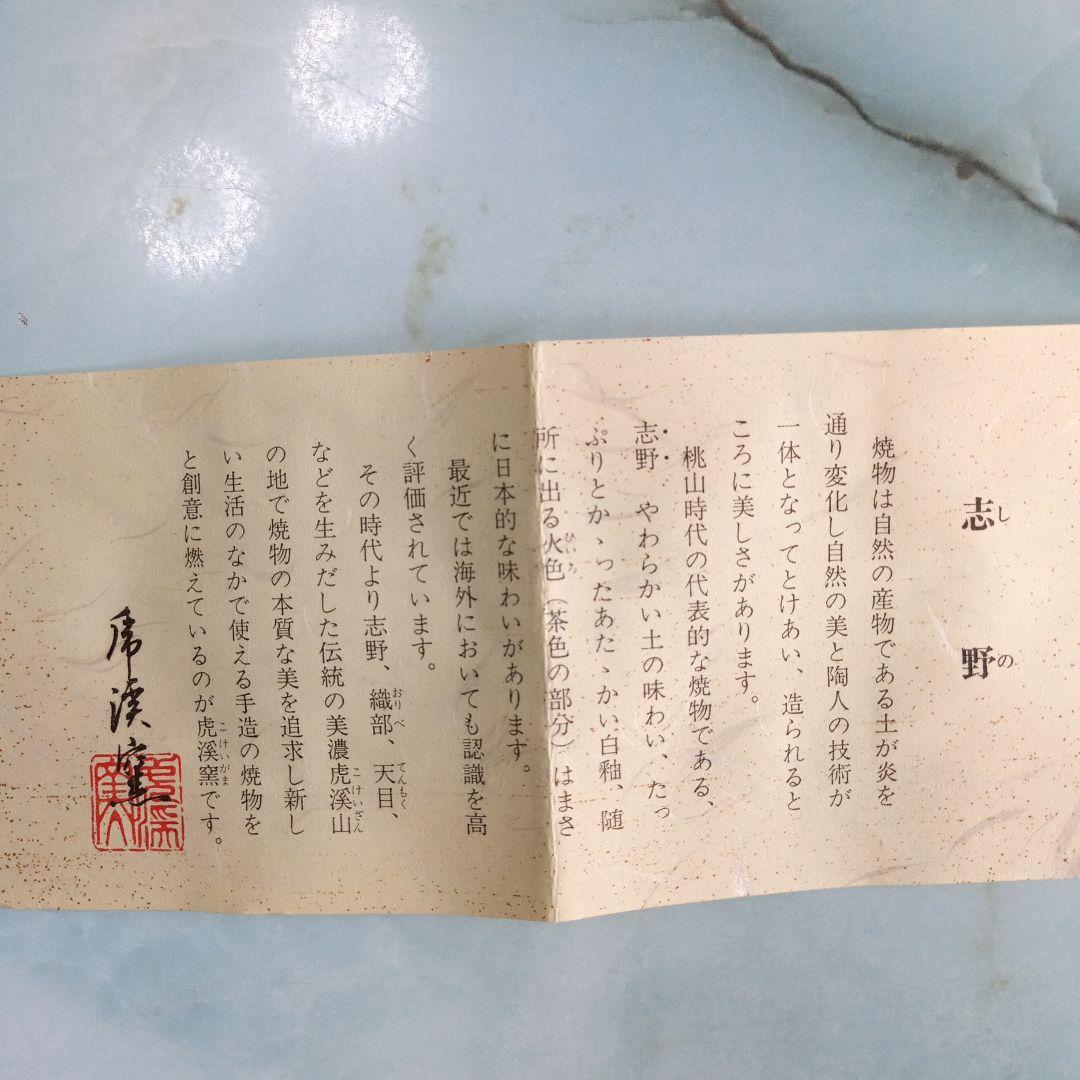 志野
しの
焼物は自然の産物である土が炎を
通り変化し自然の美と陶人の技術が
一体となってとけあい、造られると
ころに美しさがあります。
桃山時代の代表的な焼物である、
志野　やわらかい土の味わい、たっ
ぷりとかゝったあたゝかい白釉、随
所に出る火色（茶色の部分）はまさ
ひいろ
に日本的な味わいがあります。
最近では海外においても認識を高
く評価されています。
その時代より志野、織部、天目、
おりべ
てんもく
などを生みだした伝統の美濃虎溪山
こけいざん
の地で焼物の本質な美を追求し新し
い生活のなかで使える手造の焼物を
と創意に燃えているのが虎溪窯です。
こけいがま
虎溪窯
虎溪窯